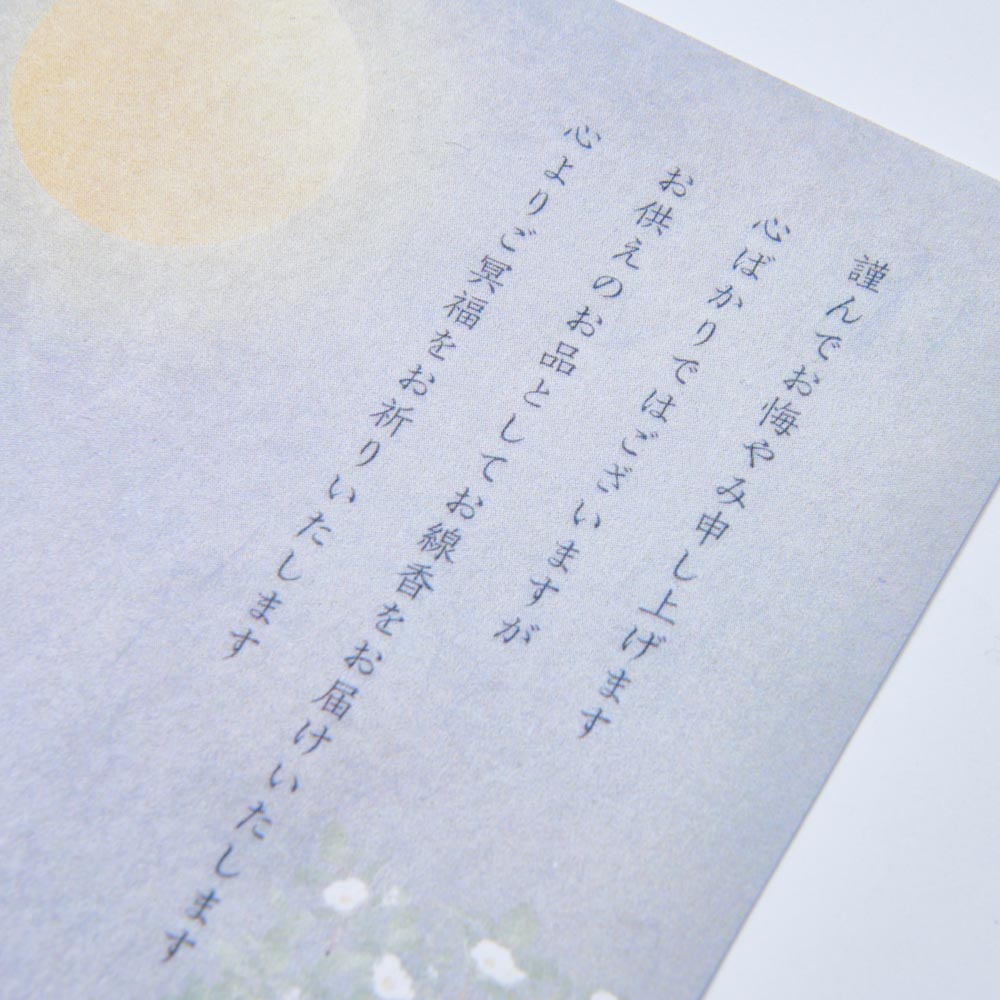 謹んでお悔やみ申し上げます
心ばかりではございますが
お供えのお品としてお線香をお届けいたします
心よりご冥福をお祈りいたします